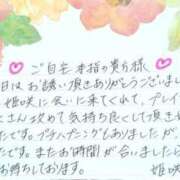 ご自宅本指の貴方様
日はお誘い頂きありがとうございまし
姫咲に会いに来てくれて、プレイ
さん攻めて気持ち良くして頂いて
たです。プチハプニングもありましたが、
たです。またお時間が合いましたら
お待ちしております。
姫咲